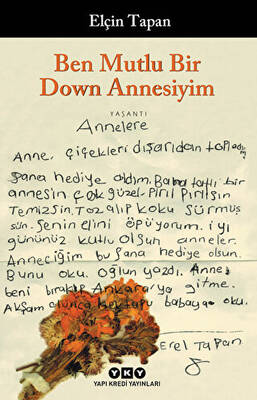 Elçin Tapan
Ben Mutlu Bir
Down Annesiyim
YAŞANTI
Annelere
Anne, çiçekleri dışarıdan topladım
sana hediye aldım. Baba tatlı bir
annesin çok güzel. Piril Pirilsin
Temizsin. Toz alıp koku sürmüş
sün. Senin elini öpüyorum. iyi
gününüz kutlu olsun anneler.
Anneciğim bu sana hediye olsun.
Bunu oku. Oğlun yazdı. Anne
beni bırakıp Ankara'ya gitme.
Akşam olunca mektubu babaya oku.
Erel TAPAN
YKY
YAPI KREDİ YAYINLARI